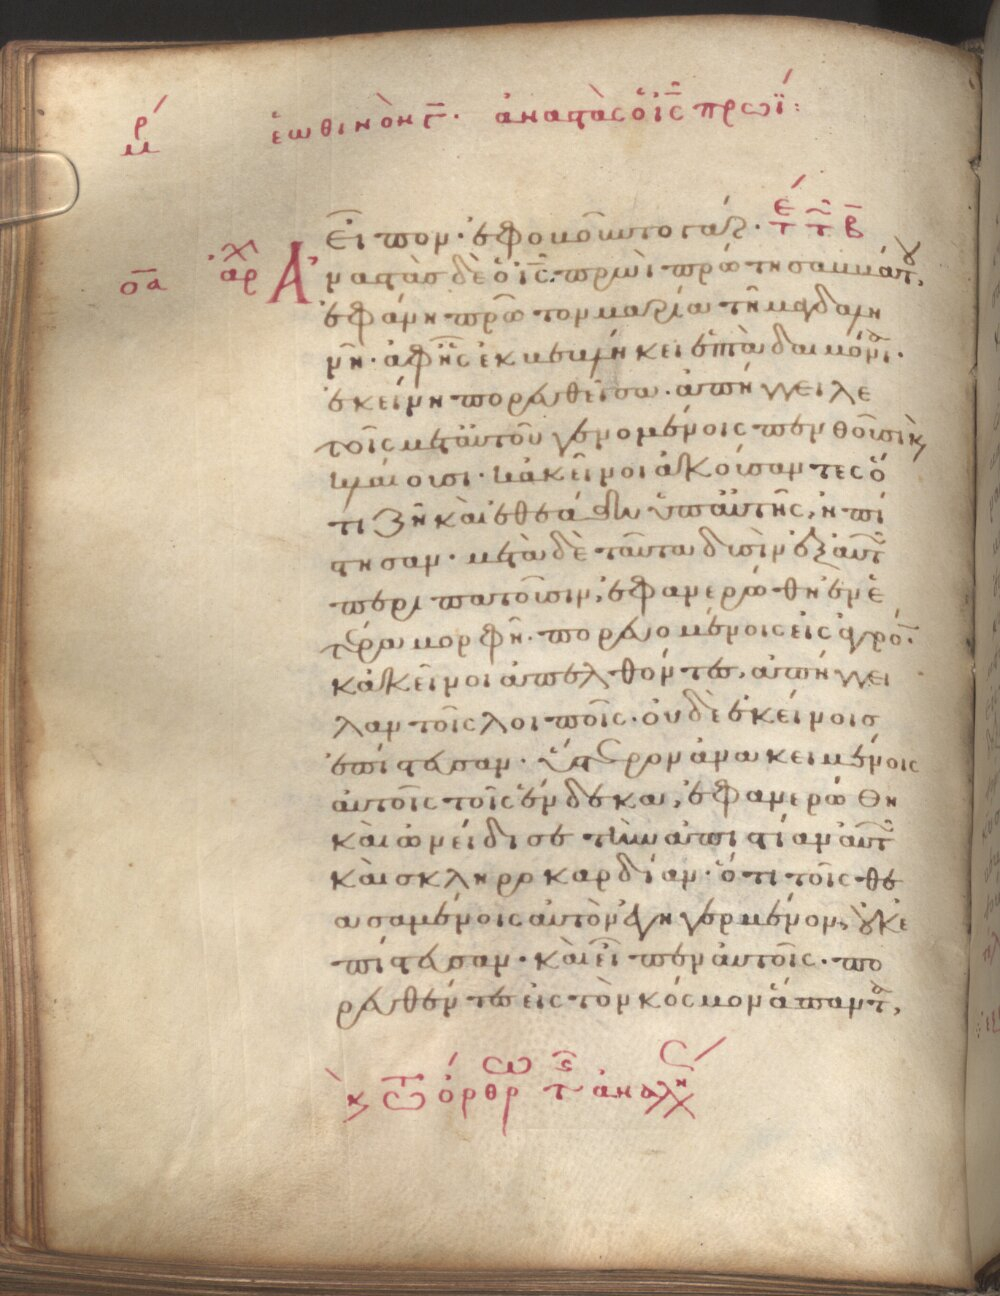 μρ ἑωθινὸν γ̄. ἀναστὰς ὁ ἰ̅ς̅ πρωΐ:
εἶπον· ἐφοβοῦντο γάρ· τε τ̅ β̅
ο̅α̅ ἀρχ Ἀναστὰς δὲ ὁ ἰ̅ς̅. πρωὶ πρώτη σαββάτου,
ἐφάνη πρῶτον μαρία τῆ μαγδαλη
νῆ· ἀφ' ἧς ἐκβεβλήκει ἑπτὰ δαιμόνια·
ἐκείνη πορευθεῖσα· ἀπήγγειλε
τοῖς μετ' αὐτοῦ γενομένοις πενθοῦσι κ̀
κλαίουσι· κἀκεῖνοι ἀκούσαντες ὅ
τι ζῆ καὶ ἐθεάθη ὑπ' αὐτῆς, ἠπί
στησαν· μετὰ δὲ ταῦτα δυσὶν ἐξ αὐτῶν
περιπατοῦσιν, ἐφανερώθη ἐν ἑ
τέρα μορφῆ· πορευομένοις εἰς ἀγρόν.
κἀκεῖνοι ἀπελθόντες, ἀπήγγει
λαν τοῖς λοιποῖς· οὐδὲ ἐκείνοις
ἐπίστευσαν· ὕστερον ἀνακειμένοις
αὐτοῖς τοῖς ἕνδεκα, ἐφανερώθη
καὶ ὠνείδισε τὴν ἀπιστίαν αὐτῶν
καὶ σκληροκαρδίαν· ὅτι τοῖς θε
ασαμένοις αὐτὸν ἐγηγερμένον, οὐκ ἐ
πίστευσαν· καὶ εἶπεν αὐτοῖς· πο
ρευθέντες εἰς τὸν κόσμον ἅπαντα,
κ̀ τῶ ὄρθρω τῆς ἀναλήψ